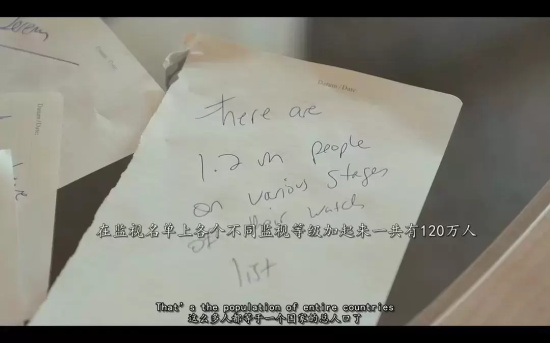 there are
1.2 m people
on various stages
of their watch
list
在监视名单上各个不同监视等级加起来一共有120万人
That's the population of entire countries
这么多人都等于一个国家的总人口了